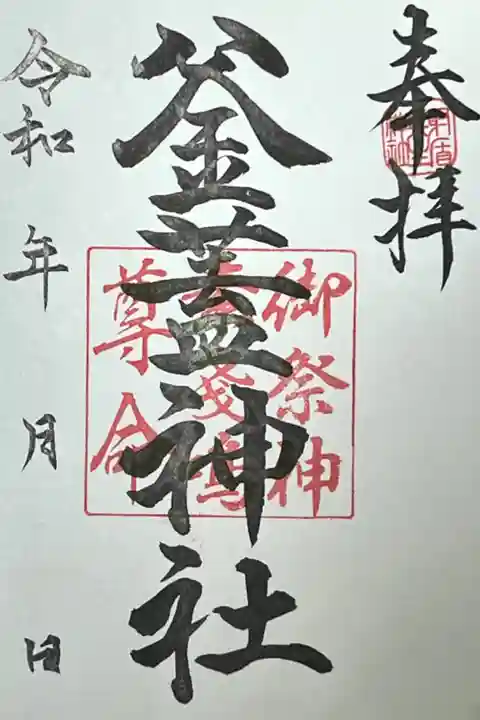 奉拝
釜蓋神社
御祭神
素戔嗚
尊
令和 年 月 日